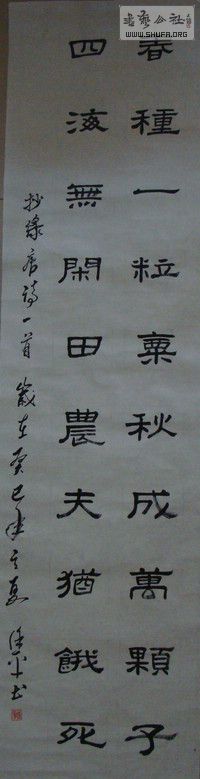 書藝公社
WWW.SHUFA.ORG
春種一粒粟秋成萬顆子
四海無閑田農夫猶餓死
抄錄唐詩一首 歲在癸巳年之夏 平书